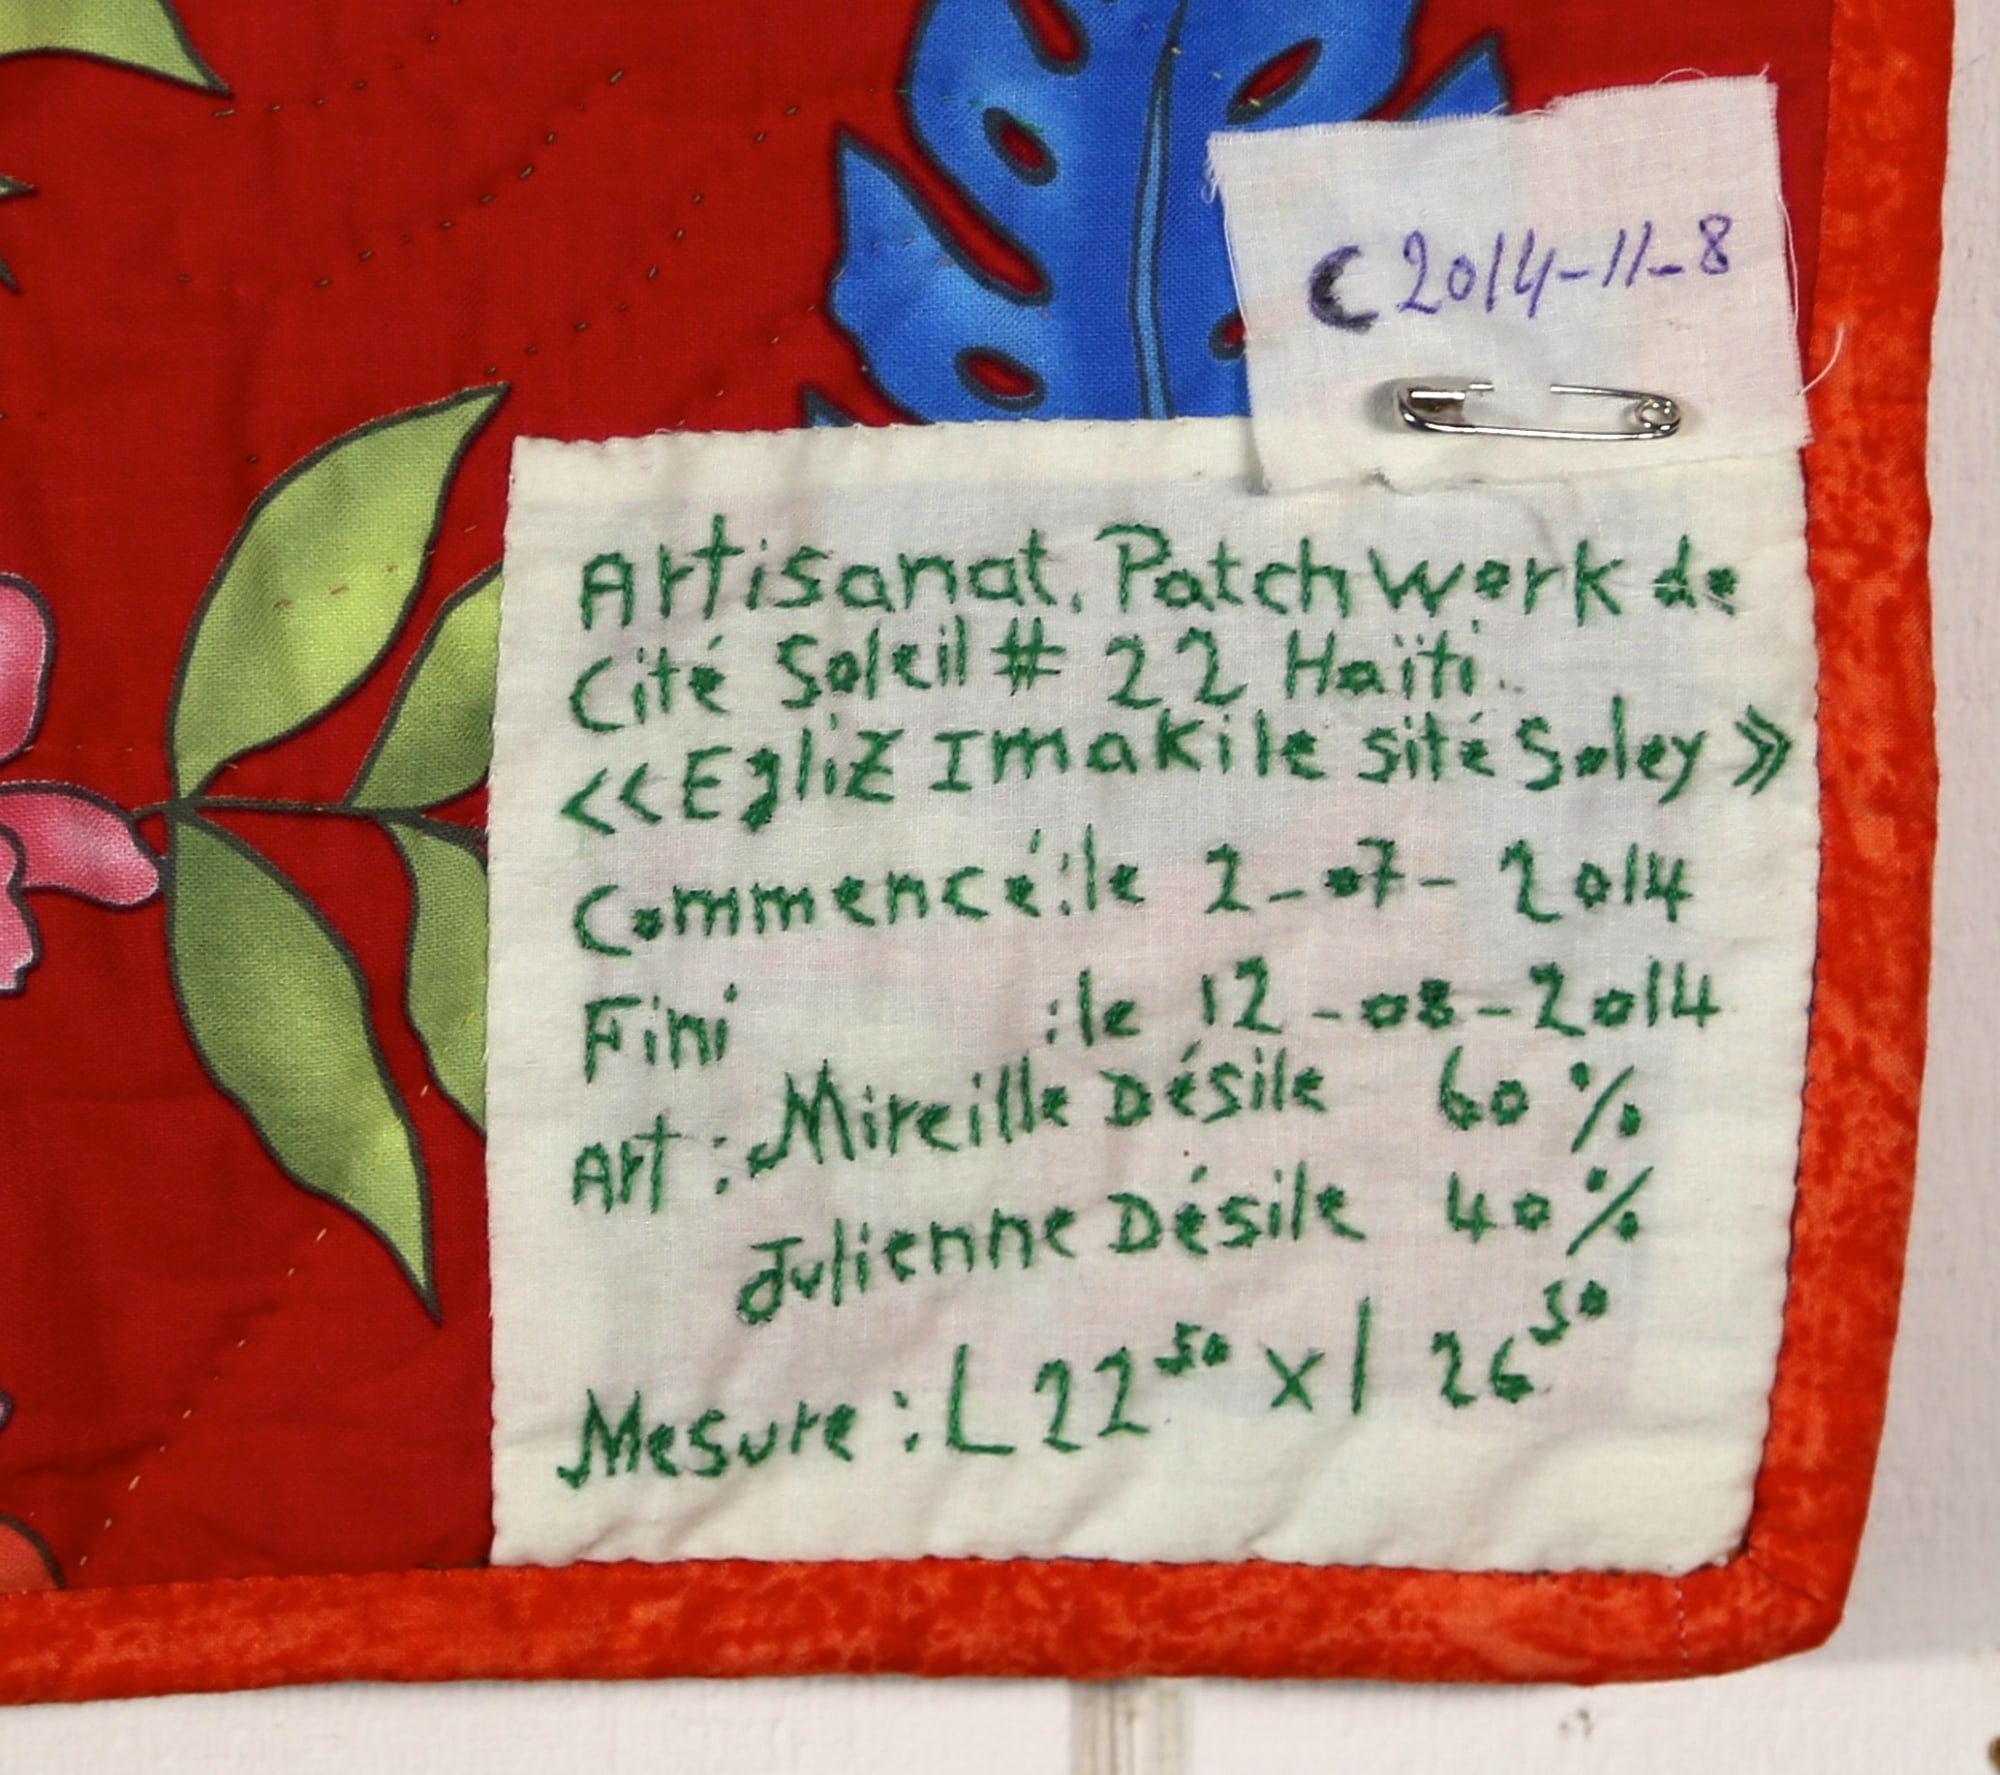 C2014-11-8
Artisanat. Patchwork de
Cité Soleil # 22 Haïti.
<<Egliz Imakile sité Soley>>
Commencé:le 2-07-2014
Fini :le 12-08-2014
Art : Mireille Désile 60%
Julienne Désile 40%
Mesure : L 22⁵⁰ x l 26⁵⁰